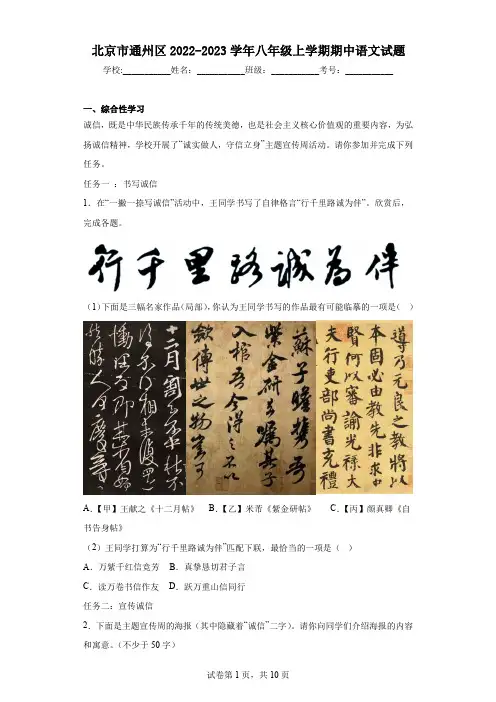 北京市通州区2022-2023学年八年级上学期期中语文试题
学校:___________姓名：___________班级：___________考号：___________
一、综合性学习
诚信，既是中华民族传承千年的传统美德，也是社会主义核心价值观的重要内容，为弘
扬诚信精神，学校开展了“诚实做人，守信立身”主题宣传周活动。请你参加并完成下列
任务。
任务一 ：书写诚信
1．在“一撇一捺写诚信”活动中，王同学书写了自律格言“行千里路诚为伴”。欣赏后，
完成各题。
行千里路诚为伴
（1）下面是三幅名家作品（局部），你认为王同学书写的作品最有可能临摹的一项是（ ）
十二月割至不中秋不
復不得相未復還
慟理為即甚省如
然勝人何慶等
蘇子瞻攜吾
紫金研去囑其子
入棺吾今得之不以
斂傳世之物豈可
導乃元良之教將以
本固必由教先非求中
賢何以審諭光祿大
夫行吏部尚書充禮
A．【甲】王献之《十二月帖》 B．【乙】米芾《紫金研帖》 C．【丙】颜真卿《自
书告身帖》
（2）王同学打算为“行千里路诚为伴”匹配下联，最恰当的一项是（ ）
A．万紫千红信竞芳 B．真挚恳切君子言
C．读万卷书信作友 D．跃万重山信同行
任务二：宣传诚信
2．下面是主题宣传周的海报（其中隐藏着“诚信”二字）。请你向同学们介绍海报的内容
和寓意。（不少于50字）
试卷第1页，共10页